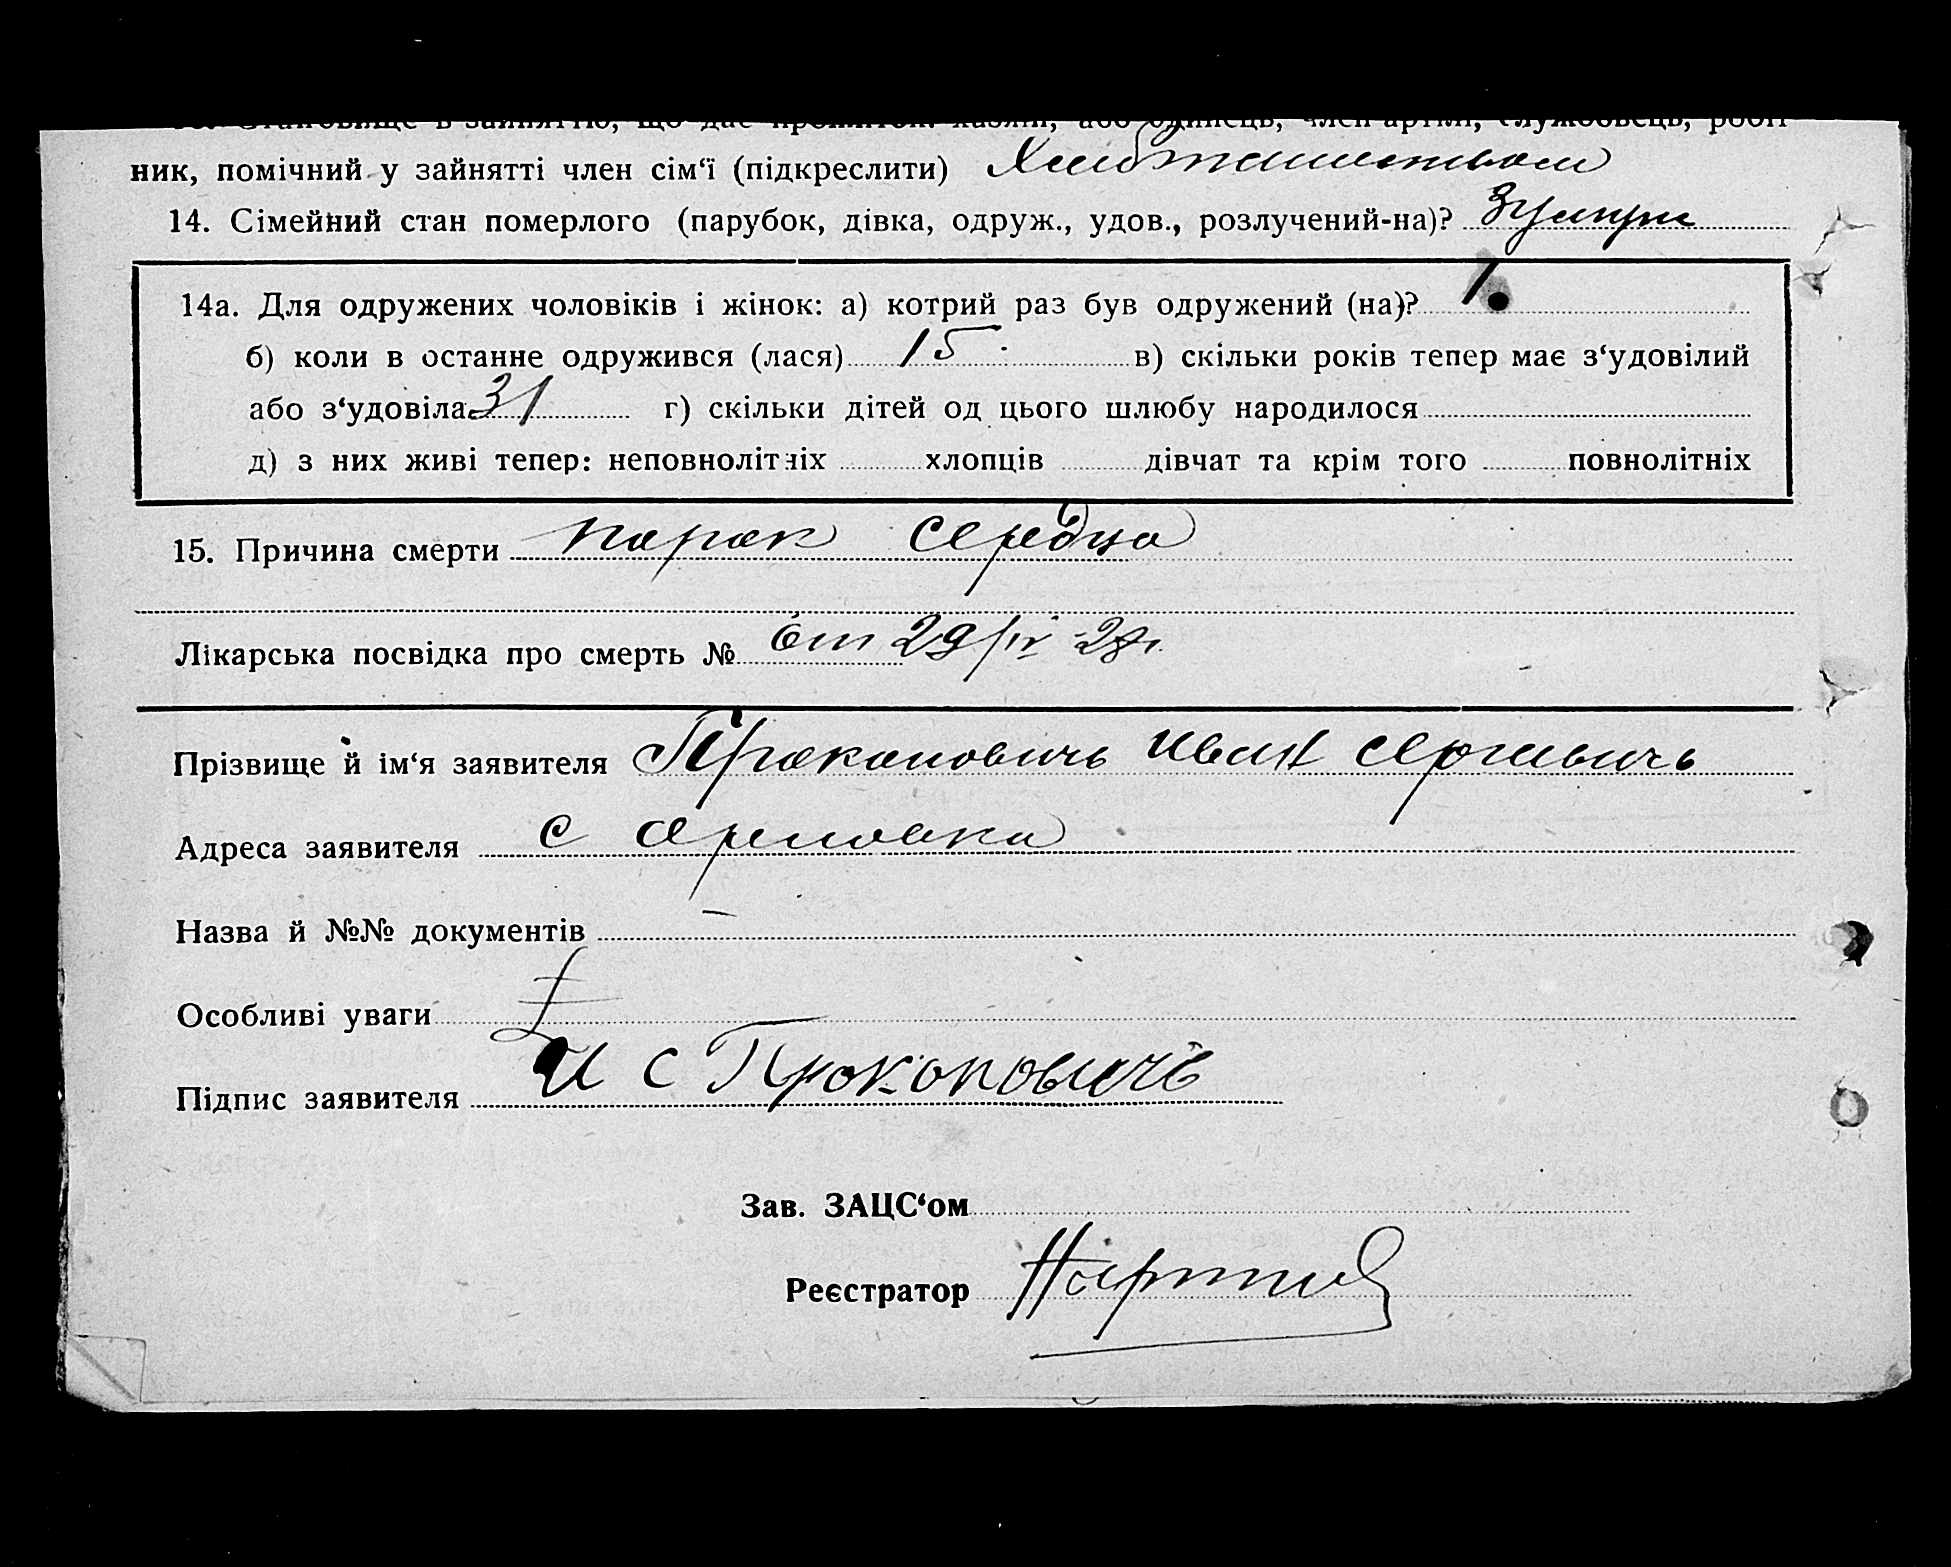 13. Становище в зайняттю, що дає прожиток: хазяїн, або одинець, член артілі, службовець, робіт
ник, помічний у зайнятті член сім‘ї (підкреслити)
14. Сімейний стан померлого (парубок, дівка, одруж., удов., розлучений-на)?
14а. Для одружених чоловіків і жінок: а) котрий раз був одружений (на)? 1
б) коли в останне одружився (лася) 15 в) скільки років тепер має з‘удовілий
або з‘удовіла 31 г) скільки дітей од цього шлюбу народилося
д) з них живі тепер: неповнолітніх хлопців дівчат та крім того повнолітніх
15. Причина смерти порок сердца
Лікарська посвідка про смерть № От 29/IV
Прізвище й ім‘я заявителя Прокопович Иван Сергиевичь
Адреса заявителя с
Назва й №№ документів —
Особливі уваги
Підпис заявителя И С Прокоповичь
Зав. ЗАЦС‘ом
Реєстратор